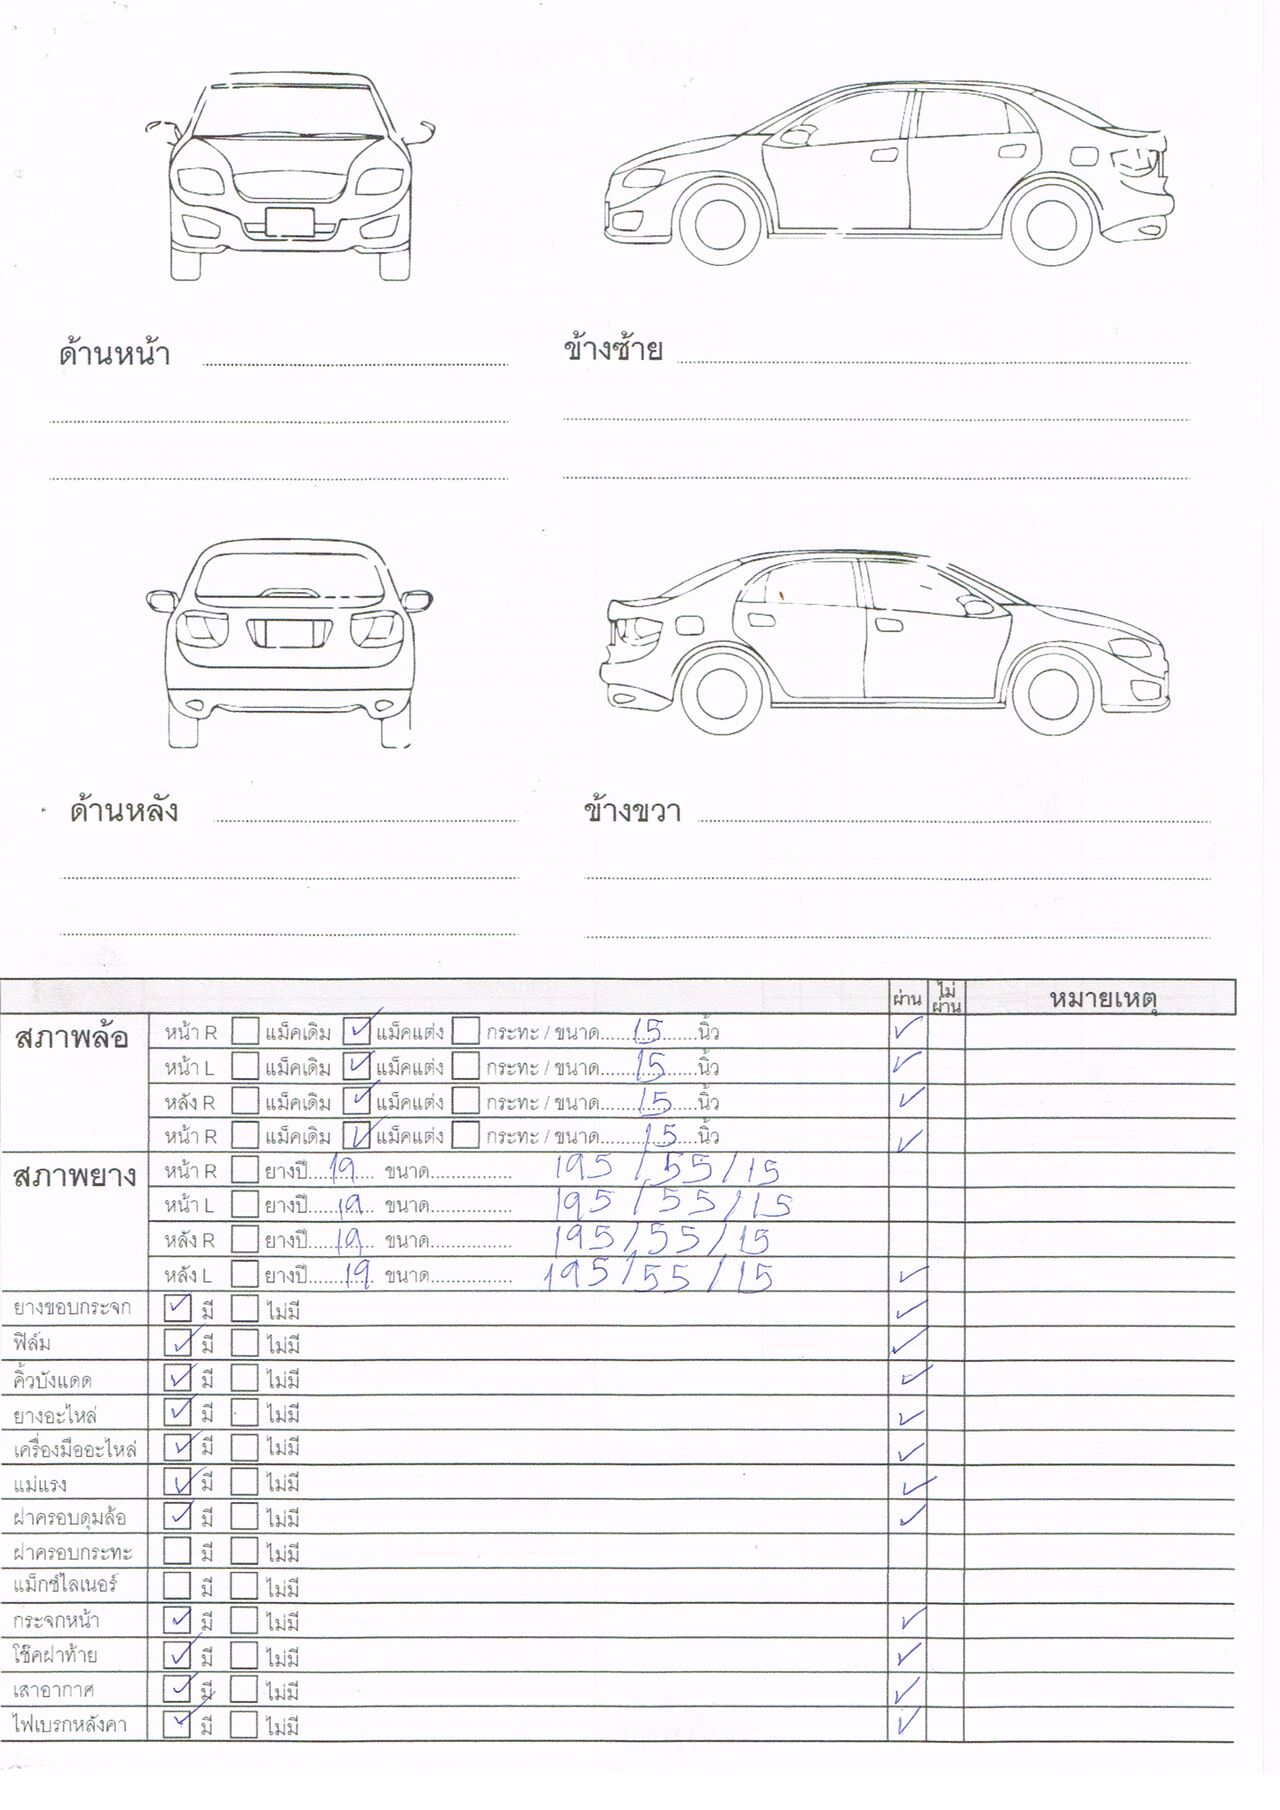 ด้านหน้า
ข้างซ้าย
ด้านหลัง
ข้างขวา
ผ่าน ไม่ผ่าน หมายเหตุ
สภาพล้อ หน้า R ☐ แม็คเดิม ☑ แม็คแต่ง ☐ กระทะ / ขนาด.....15.....นิ้ว ✓
หน้า L ☐ แม็คเดิม ☑ แม็คแต่ง ☐ กระทะ / ขนาด.....15.....นิ้ว ✓
หลัง R ☐ แม็คเดิม ☑ แม็คแต่ง ☐ กระทะ / ขนาด.....15.....นิ้ว ✓
หน้า R ☐ แม็คเดิม ☑ แม็คแต่ง ☐ กระทะ / ขนาด.....15.....นิ้ว ✓
สภาพยาง หน้า R ☐ ยางปี.....19..... ขนาด................ 195 / 55 / 15
หน้า L ☐ ยางปี.....19..... ขนาด................ 195 / 55 / 15
หลัง R ☐ ยางปี.....19..... ขนาด................ 195 / 55 / 15
หลัง L ☐ ยางปี.....19..... ขนาด................ 195 / 55 / 15 ✓
ยางขอบกระจก ☑ มี ☐ ไม่มี ✓
ฟิล์ม ☑ มี ☐ ไม่มี ✓
คิ้วบังแดด ☑ มี ☐ ไม่มี ✓
ยางอะไหล่ ☑ มี ☐ ไม่มี ✓
เครื่องมืออะไหล่ ☑ มี ☐ ไม่มี ✓
แม่แรง ☑ มี ☐ ไม่มี ✓
ฝาครอบดุมล้อ ☑ มี ☐ ไม่มี ✓
ฝาครอบกระทะ ☐ มี ☐ ไม่มี
แม็กซ์ไลเนอร์ ☐ มี ☐ ไม่มี
กระจกหน้า ☑ มี ☐ ไม่มี ✓
โช๊คฝาท้าย ☑ มี ☐ ไม่มี ✓
เสาอากาศ ☑ มี ☐ ไม่มี ✓
ไฟเบรกหลังคา ☑ มี ☐ ไม่มี ✓